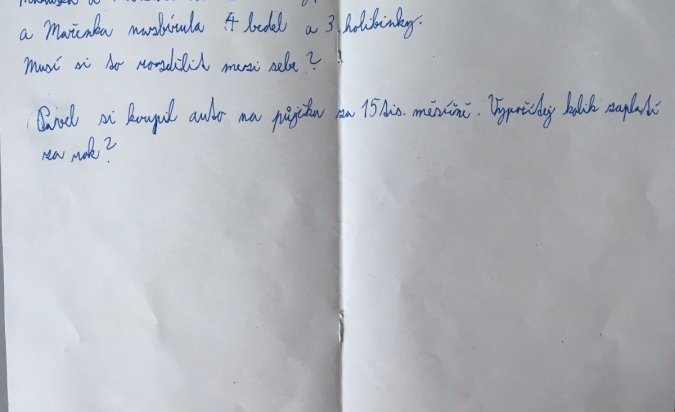 a Mařenka nasbírala 4 bedel a 3 holibinky.
Musí si to rozdělit mezi sebe?
Pavel si koupil auto na půjčku za 15 tis. měsíčně. Vypočítej kolik zaplatí
za rok?